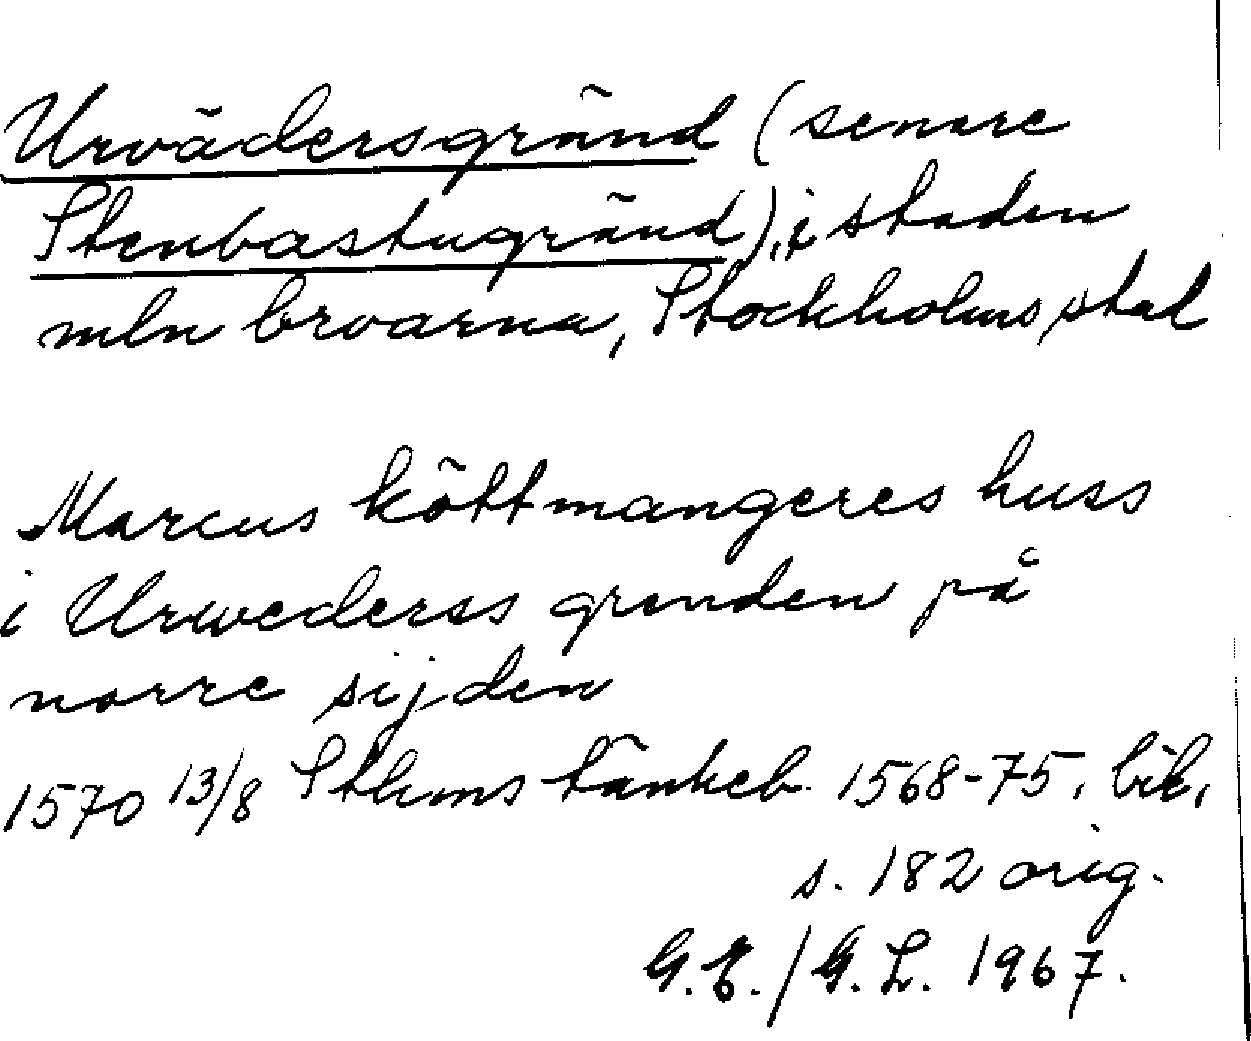 Urvädersgränd (senare
Stenbastugränd), i staden
mln broarna, Stockholms stad
Marcus köttmangeres huss
i Urwederss grenden på
norre sijden
1570 13/8 Sthms tänkeb. 1568-75, bil,
s. 182 orig.
G.E./G.L. 1967.